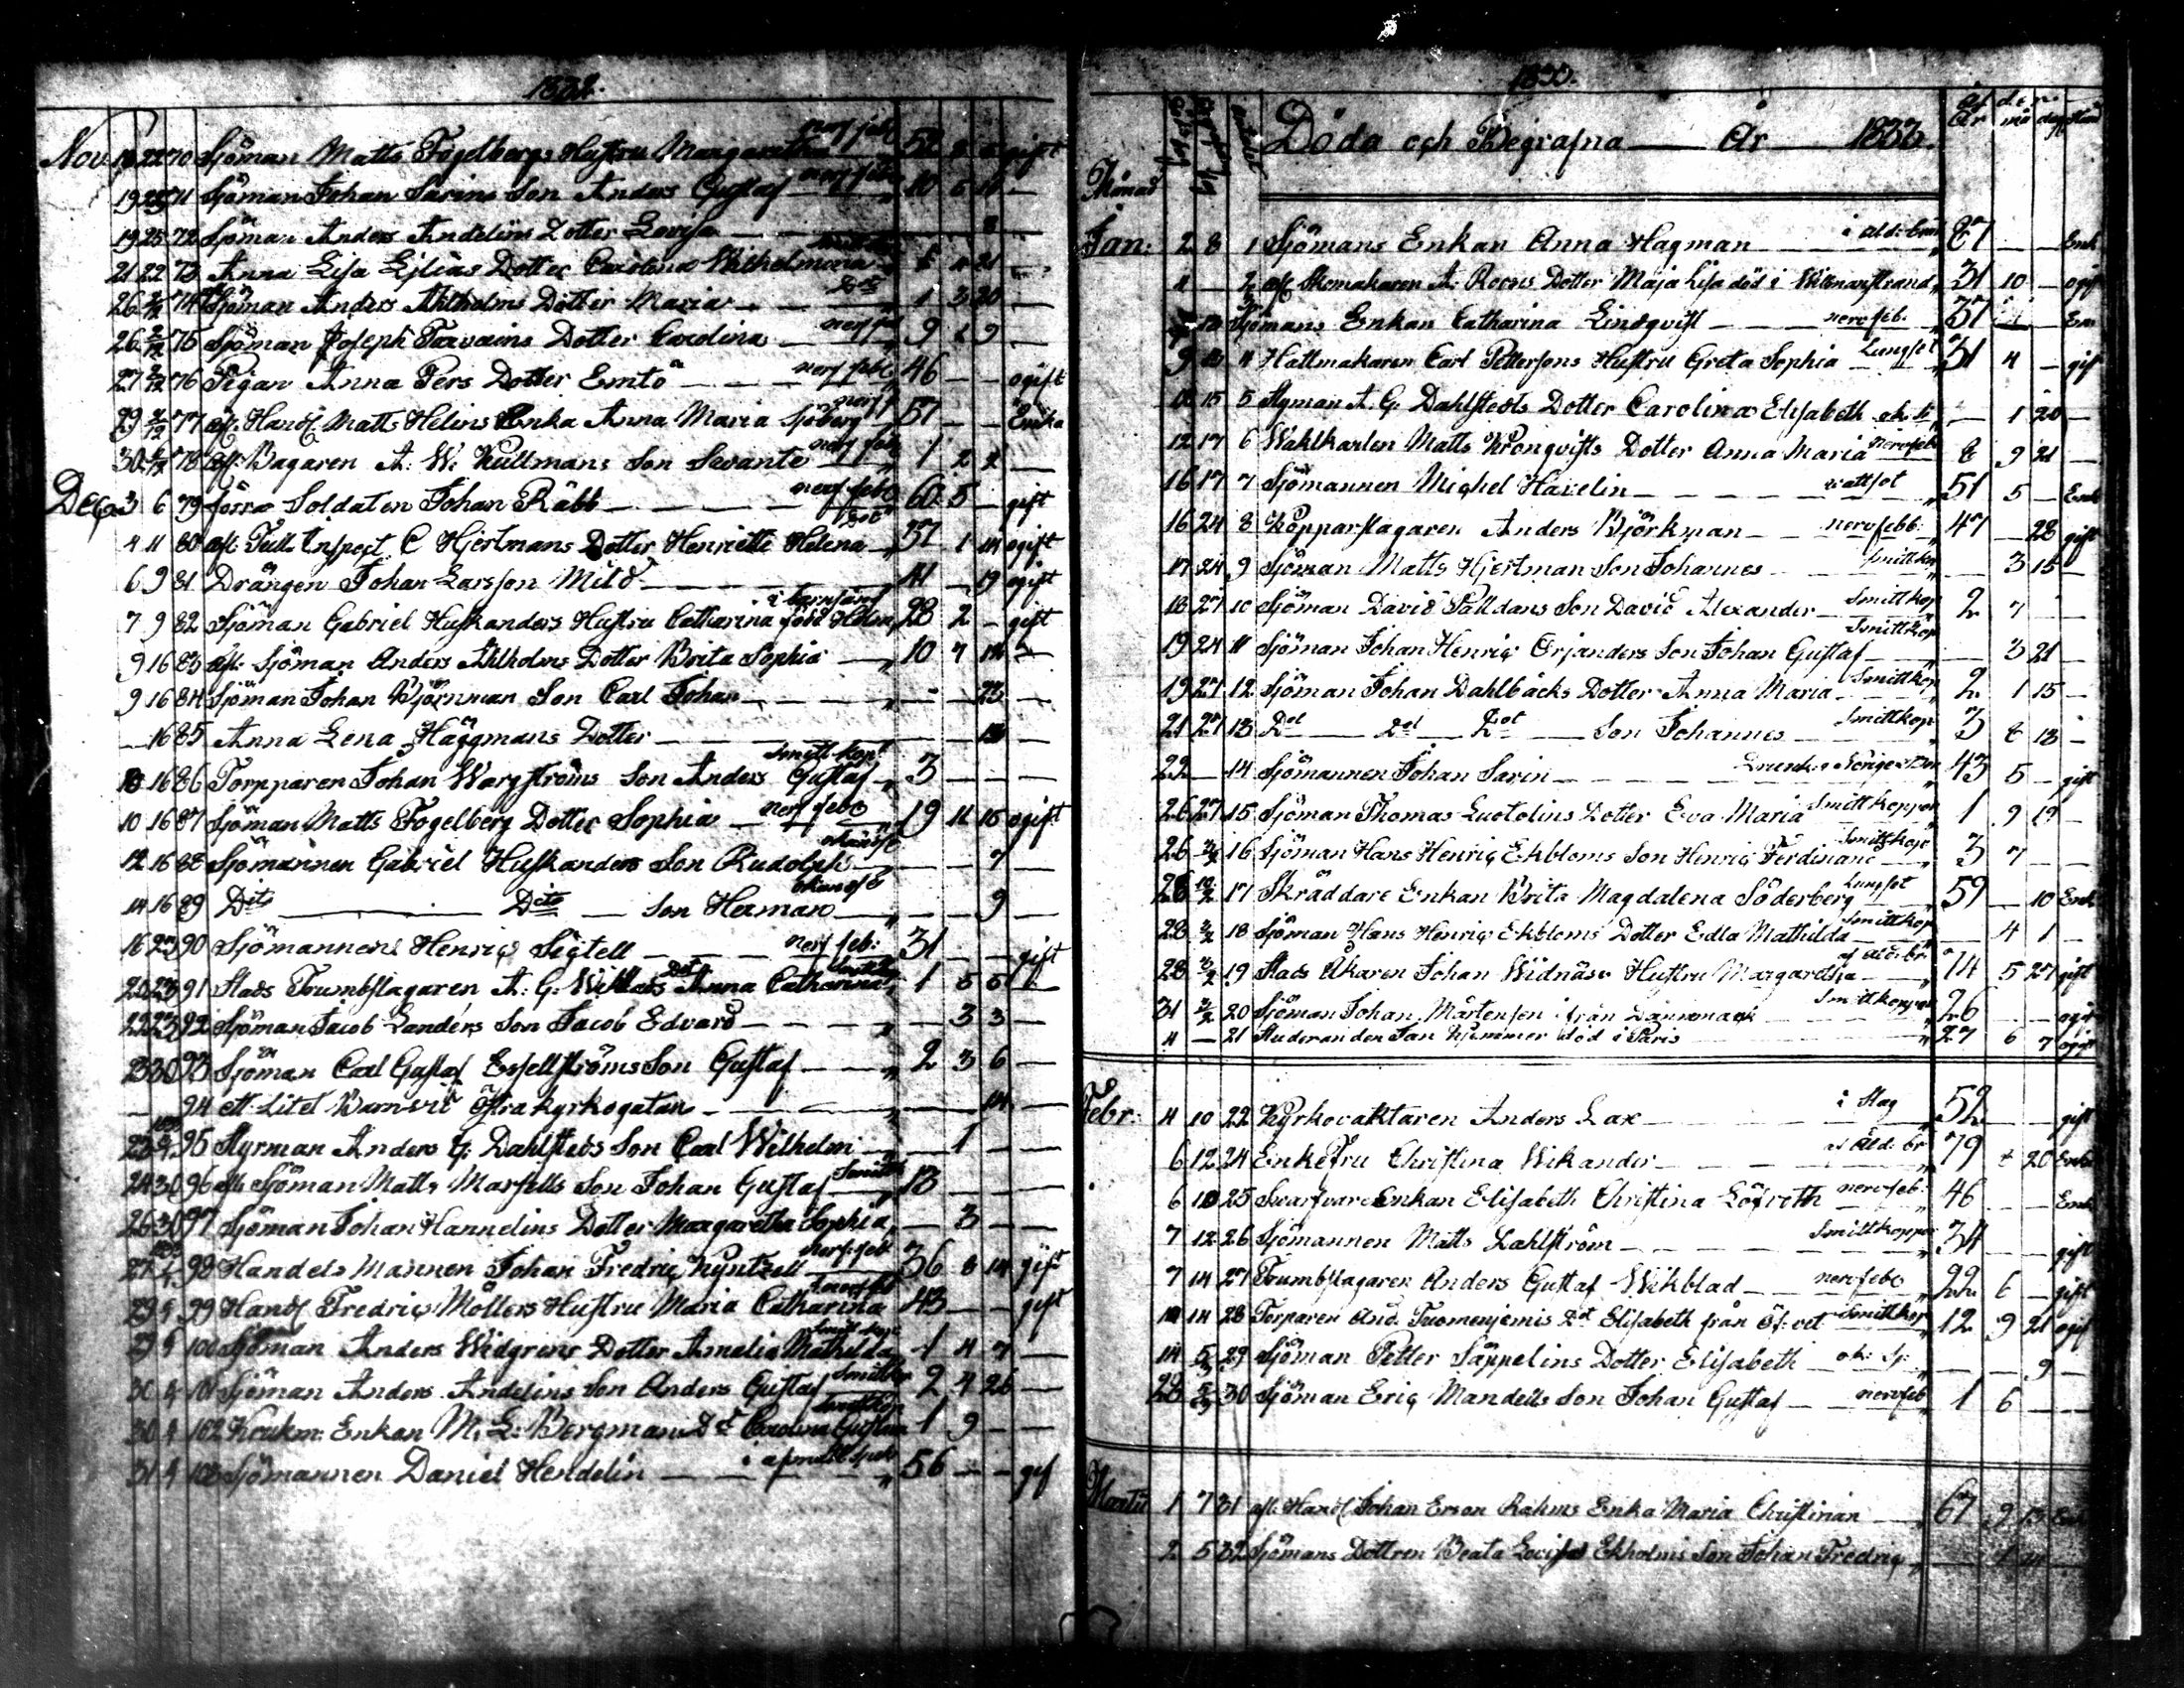 1832.
Nov. 16 22 70 Sjöman Matts Fogelbergs Hustru Margaretha nerf feb 52 gift
19 25 71 Sjöman Johan Sarins Son Anders Gustaf nerf feb 10 5 16 —
19 25 72 Sjöman Anders Andelins Dotter Lovisa — 8 —
21 22 73 Anna Lisa Eliäs Dotter Carolina Wilhelmina 21 —
26 2/12 74 Sjöman Anders Ahlholms Dotter Maria — Dito 1 3 20 —
26 2/12 75 Sjöman Joseph Dotter Carolina — nerf f 9 2 9 —
27 2/12 76 Pigan Anna Pers Dotter Emtö — nerf feb 46 — — ogift
29 2/12 77 afl. Handl. Matts Helins Enka Anna Maria Sjöberg nerf f 57 — — Enka
30 78 afl. Bagaren A. W. Kullmans Son Sevante nerf feb 1 2 2 —
Dec. 3 6 79 förra Soldaten Johan Räbb — nerf feb 60 5 — gift
4 11 80 afl. Tull Inspect C Hjertmans Dotter Henriette Helena Dito 37 1 14 ogift
6 9 81 Drängen Johan Larsson Mild — 41 — 19 ogift
7 9 82 Sjöman Gabriel Huskanders Hustru Catharina född Holm i barnsäng 28 2 — gift
9 16 83 afl. Sjöman Anders Ahlholms Dotter Brita Sophia — 10 7 14 —
9 16 84 Sjöman Johan Björnman Son Carl Johan — — — 23 —
— 16 85 Anna Lena Häggmans Dotter — 13 —
10 16 86 Torpparen Johan Wargströms Son Anders Gustaf Smitt kop. 3 — — —
10 16 87 Sjöman Matts Fogelberg Dotter Sophia — nerf feb 19 11 15 ogift
12 16 88 Sjömannen Gabriel Huskanders Son Rudolph — okänd s. — — 7 —
14 16 89 Dito — Dito — Son Herman — okänd s. — — 9 —
16 23 90 Sjömannen Henric Sigtell — nerf feb: 31 — — gift
20 23 91 Stads Trumbslagaren A. G. Dot Anna Catharina 1 5 5
22 23 92 Sjöman Jacob Landérs Son Jacob Edvard — — 3 3 —
23 30 93 Sjöman Carl Gustaf Son Gustaf — 2 3 6 —
— 94 ett Litet Barn vid Östra kyrkogatan — — 14 —
23 95 Styrman Anders G: Dahlsteds Son Carl Wilhelm — 1 — —
24 30 96 afl. Sjöman Matts Marsells Son Johan Gustaf 13 — — —
26 30 97 Sjöman Johan Hannelins Dotter Margaretha Sophia — 3 — —
27 98 Handels Mannen Johan Fredric Kyntzell nerf: feb 36 8 14 gift
29 99 Handl Fredric Möllers Hustru Maria Catharina 43 — — gift
29 100 Sjöman Anders Widgrens Dotter Amalia Mathilda 1 4 7 —
30 101 Sjöman Anders Andelins Son Anders Gustaf 2 4 26 —
30 102 Enkan M. L. Bergmans Dt Carolina 1 9 — —
31 103 Sjömannen Daniel Hendelin — 56 — — gif
1833.
Döda och Begrafna — År 1833.
Månad
Jan: 2 8 1 Sjömans Enkan Anna Hagman — i åld: bräc 87 — — Enk
4 — 2 afl Skomakaren A: Dotter Maja Lisa död i 31 10 — ogif
Sjömans Enkan Catharina Lindqvist — nervfeb. 37 En
9 4 Hattmakaren Carl Pettersons Hustru Greta Sophia Lungsot 51 4 — gif
10 15 5 Styrman A. G. Dahlstedts Dotter Carolina Elisabeth — 1 20 —
12 17 6 Wahlkarlen Matts Kronqvists Dotter Anna Maria nervfeb 8 9 21 —
16 17 7 Sjömannen Michel Havelin — wattsot 51 5 — Enk
16 24 8 Kopparslagaren Anders Björkman — nervfebb. 47 — 28 gift
17 24 9 Sjöman Matts Hjertman Son Johannes — Smittkop — 3 15 —
18 27 10 Sjöman David Palldans Son David Alexander — Smittkop 2 7 —
19 24 11 Sjöman Johan Henric Orjanders Son Johan Gustaf Smittkop — 3 21 —
19 27 12 Sjöman Johan Dahlbäcks Dotter Anna Maria — Smittkop 2 1 15 —
21 27 13 Dot — Dot — Dot — Son Johannes — Smittkop 3 8 13 —
22 — 14 Sjömannen Johan Sarin — 43 5 — gift
26 27 15 Sjöman Thomas Luotolins Dotter Eva Maria Smittkoppor 1 9 19 —
26 3/2 16 Sjöman Hans Henric Ekbloms Son Henric Ferdinand Smittkop 3 7 — —
28 10/2 17 Skräddare Enkan Brita Magdalena Söderberg Lungsot 59 — 10 Enk
28 3/2 18 Sjöman Hans Henric Ekbloms Dotter Edla Mathilda Smittkop — 4 1 —
28 3/2 19 Stads Åkaren Johan Widnäs Hustru Margaretha af åld: br 74 5 27 gift
31 3/2 20 Sjöman Johan Mårtenson ifrån Dannmark Smittkoppor 26 — ogift
4 — 21 Studeranden Jan död i Paris — 27 6 7 ogift
Febr: 4 10 22 Kyrkovaktaren Anders Lax — i Slag 52 — — gift
6 12 24 Enkefru Christina Wikander — af åld: br 79 20 Enk
6 10 25 Swarfvare Enkan Elisabeth Christina Löfroth nervfeb. 46 — — Enk
7 12 26 Sjömannen Matts Dahlström — Smittkoppor 34 — — gift
7 14 27 Trumbslagaren Anders Gustaf Wikblad — nervfeb 22 6 — gift
14 28 Torparen And. Tuomenjemis Dot Elisabeth från Smittkop 12 9 21 ogif
14 5/3 29 Sjöman Petter Säppelins Dotter Elisabeth — ok: sj: — — 9 —
28 5/3 30 Sjöman Eric Mandells Son Johan Gustaf — nervfeb 1 6 — —
Martii 1 7 31 afl. Handl Johan Erson Rahms Enka Maria Christinan — 67 9 13 Enk
2 5 32 Sjömans Dottren Beata Lovisa Ekholms Son Johan Fredric —